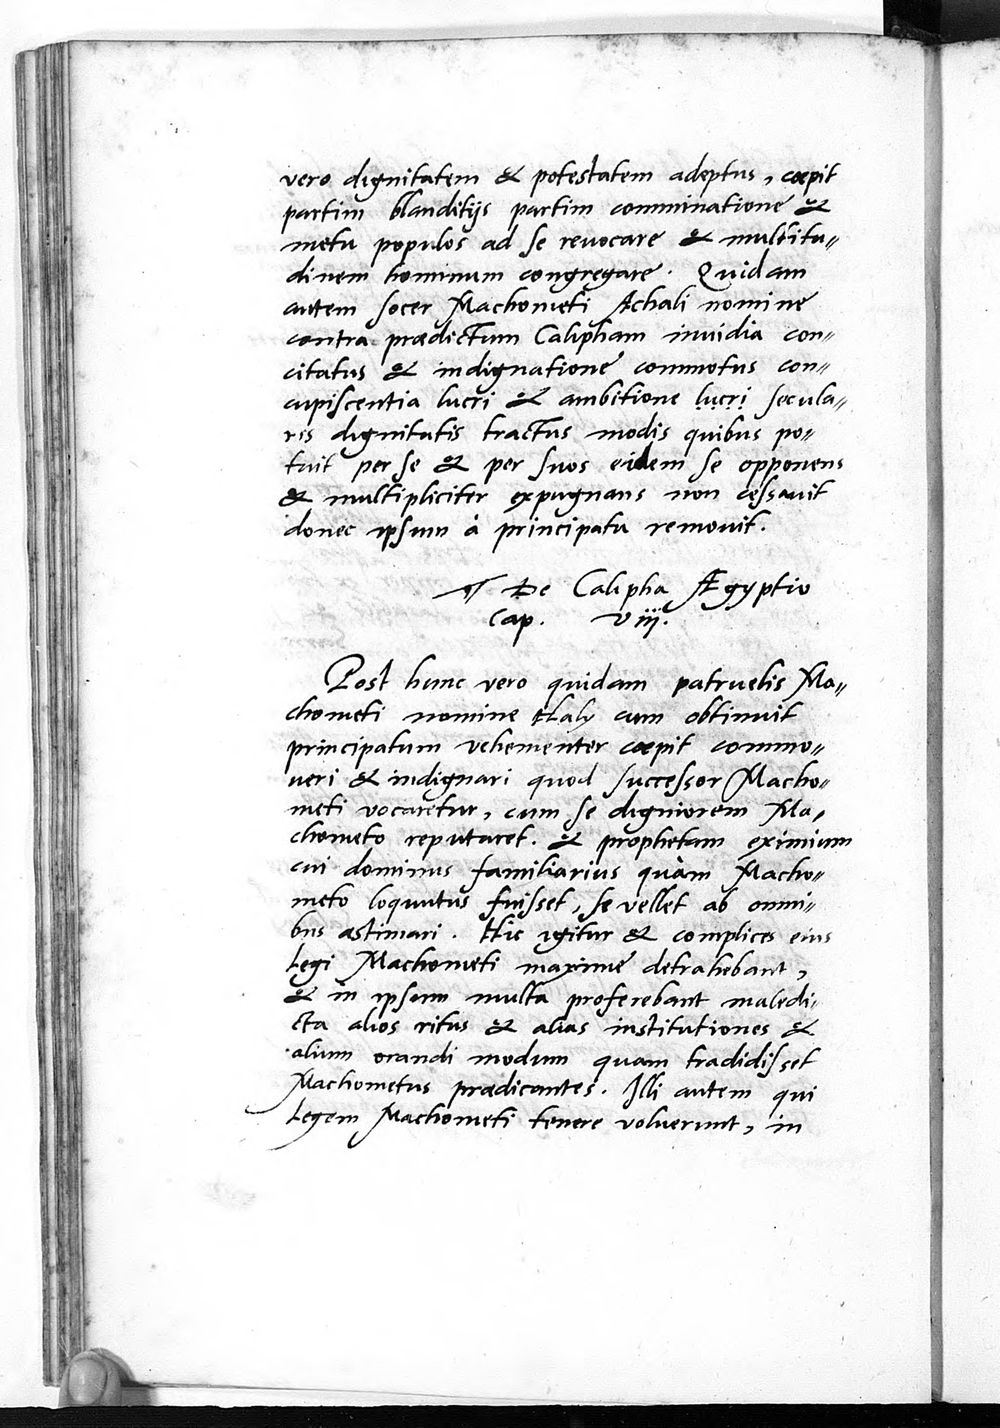 vero dignitatem & potestatem adeptus, cœpit
partim blanditijs partim comminatione &
metu populos ad se reuocare & multitu„
dinem hominum congregare. Quidam
autem socer Machometi Achali nomine
contra prædictum Calipham inuidia con„
citatus & indignatione commotus con„
cupiscentia lucri & ambitione lucri secula„
ris dignitatis tractus modis quibus po„
tuit per se & per suos eidem se opponens
& multipliciter expugnans non cessauit
donec ipsum à principatu remouit.
¶ De Calipha Ægyptio
Cap. viij.
Post hunc vero quidam patruelis Ma„
chometi nomine Haly cum obtinuit
principatum vehementer cœpit commo„
ueri & indignari quod successor Macho„
meti vocaretur, cum se digniorem Ma„
chometo reputaret. & prophetam eximium
cui dominus familiarius quàm Macho„
meto loquutus fuisset, se vellet ab omni„
bus æstimari. Hic igitur & complices eius
Legi Machometi maxime detrahebant,
& in ipsum multa proferebant maledi„
cta alios ritus & alias institutiones &
alium orandi modum quam tradidisset
Machometus prædicantes. Illi autem qui
Legem Machometi tenere voluerunt, in